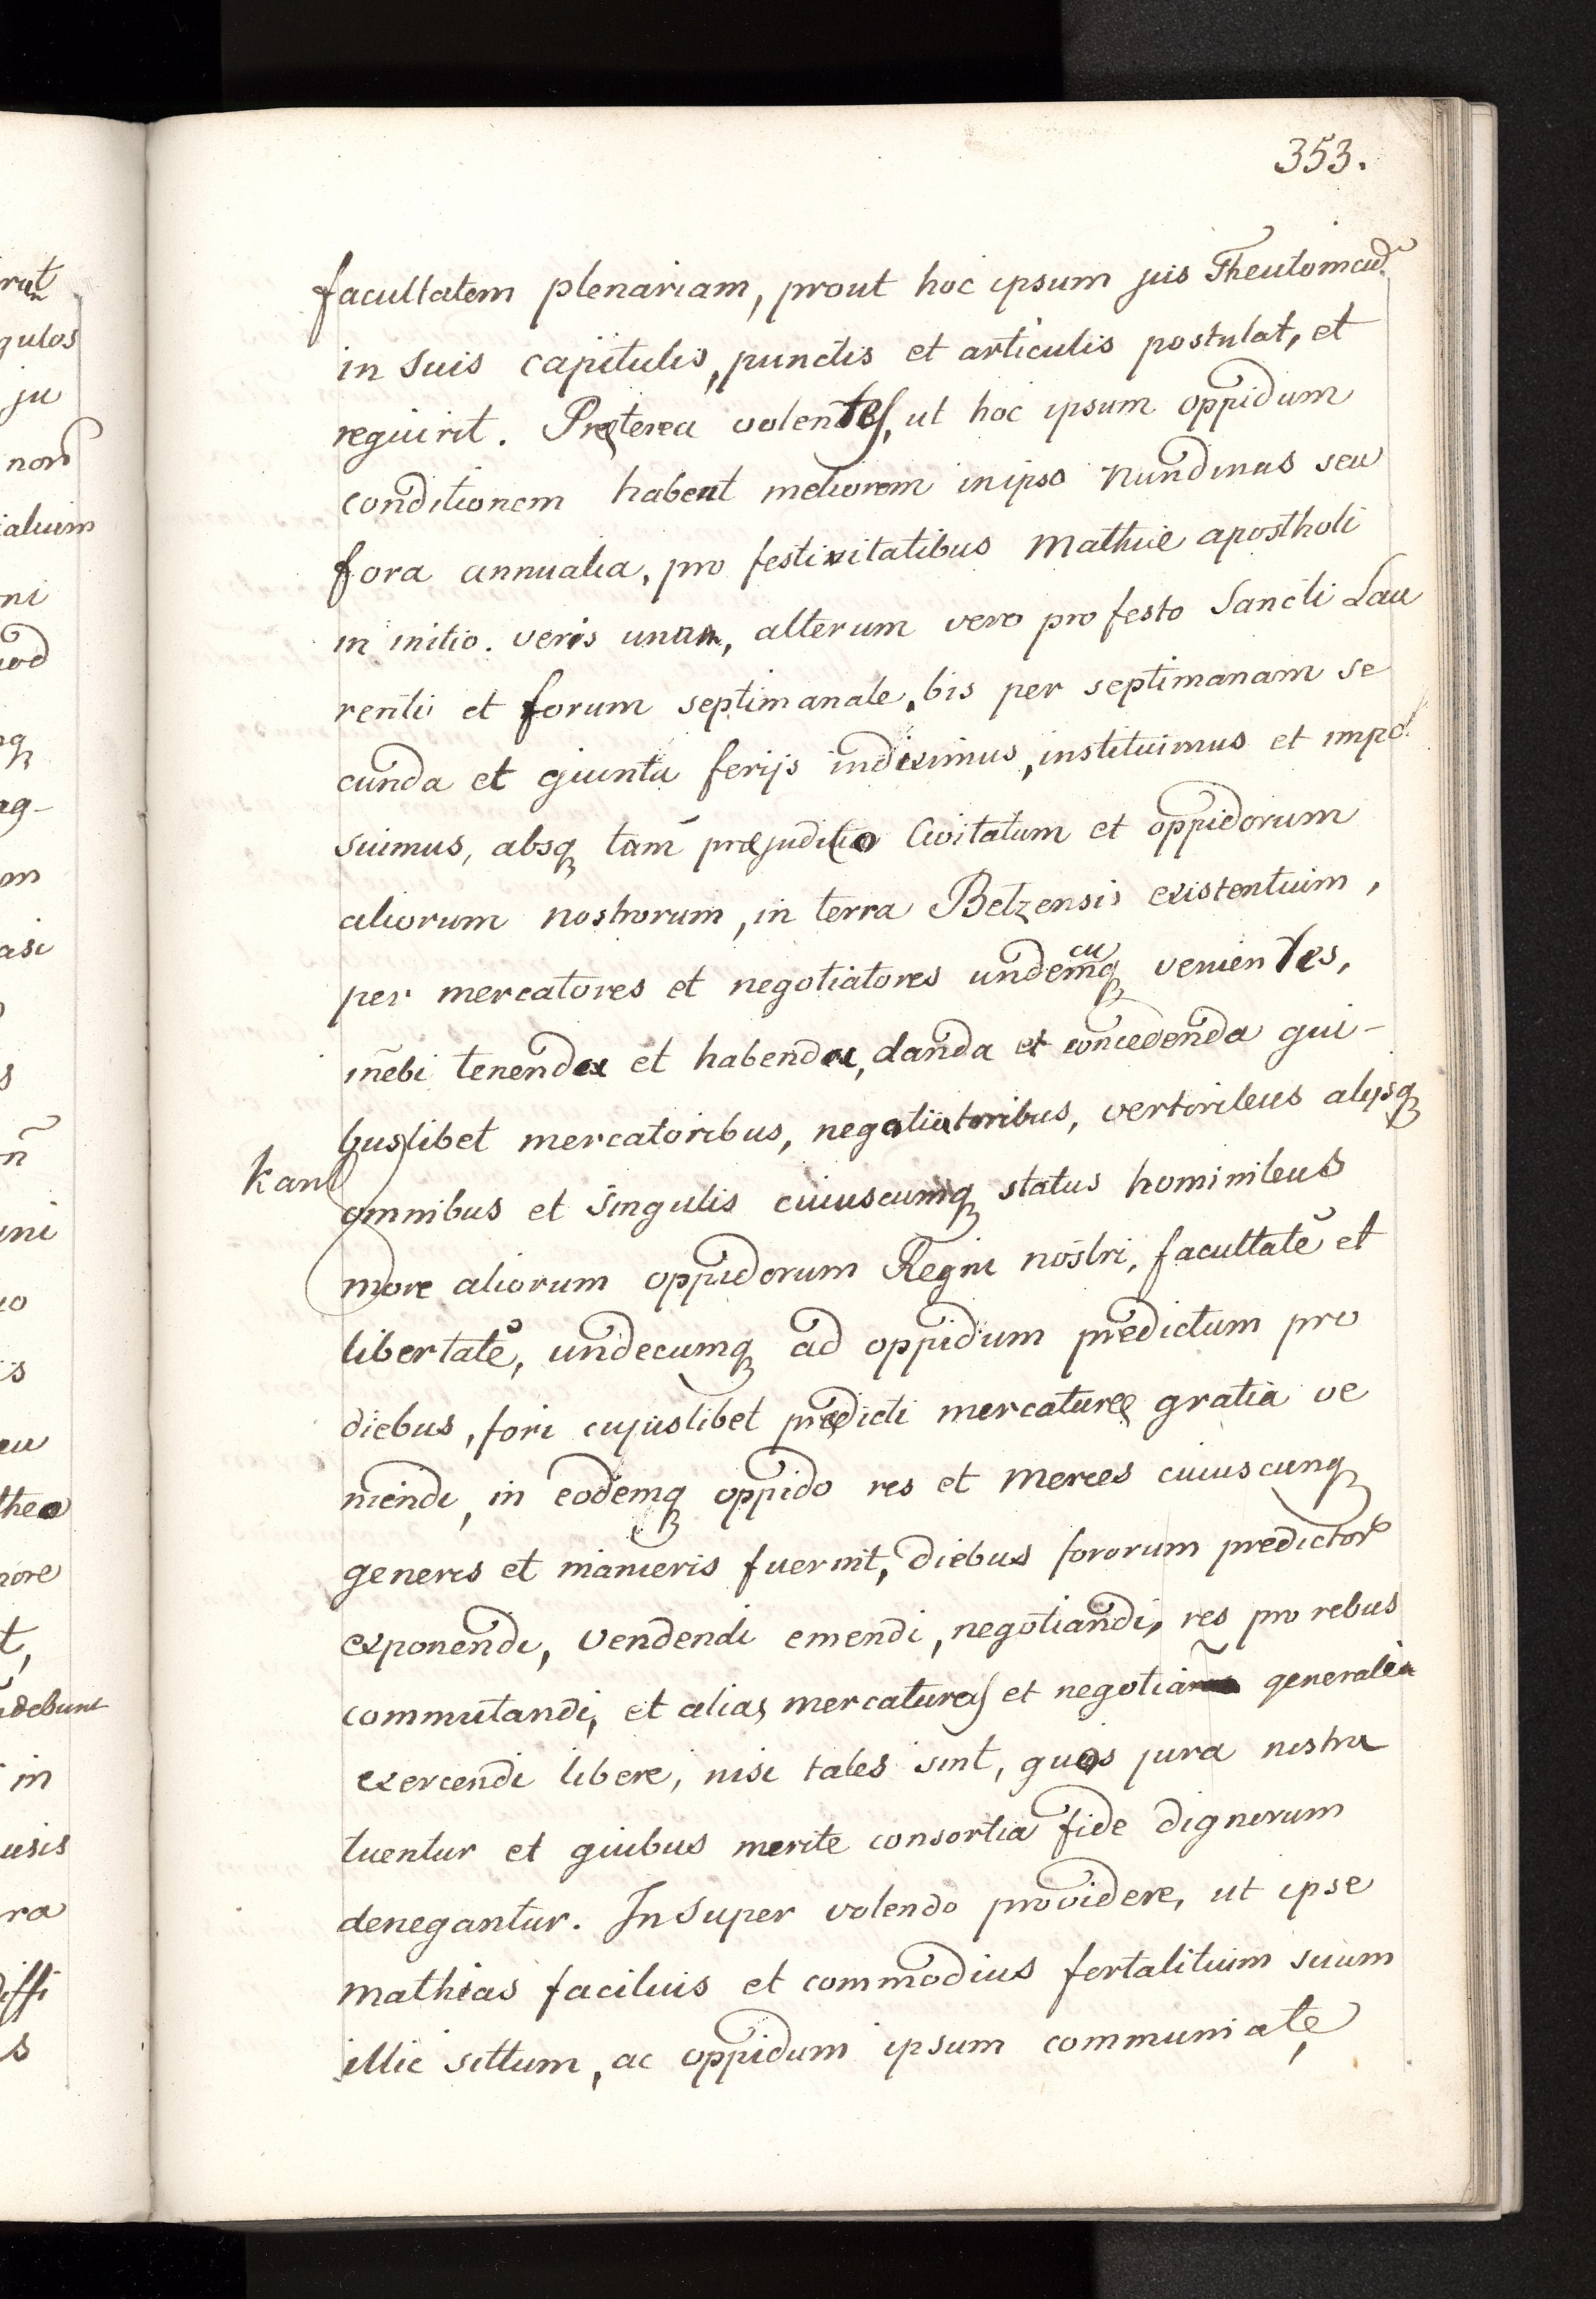 353.
facultatem plenariam, prout hoc ipsum jus Theutonicũ
in suis capitulis, punctis et articulis postulat, et
requirit. Pręterea volentes, ut hoc ipsum oppidum
conditionem habeat meliorem in ipso Nundinas seu
fora annualia, pro festivitatibus Mathiæ apostholi
in initio. veris unum, alterum vero pro festo Sancti Lau
renti et forum septimanale, bis per septimanam se
cunda et quinta ferijs indiximus, instituimus et impo
suimus, absq tam̃ præjuditio Civitatum et oppidorum
aliorum nostrorum, in terra Betzensis existentium,
per mercatores et negotiatores undecumq venientes,
inibi tenenda et habenda, danda et concedenda qui-
buslibet mercatoribus, negotiatoribus, vectoribus alijsq
Kan
omnibus et singulis cuiuscumq status hominibus
more aliorum oppidorum Regni nostri, facultatē et
libertatē, undecumq ad oppidum predictum pro
diebus, fori cujuslibet prædicti mercaturę gratia ve
niendi, in eodemq oppido res et merces cuiuscunq
generis et manieris fuerint, diebus fororum predictor
exponendi, vendendi emendi, negotiandi, res pro rebus
commutandi, et alias mercaturas et negotia generalia
exercendi libere, nisi tales sint, quos jura nostra
tuentur et quibus merite consortia fide dignorum
denegantur. Insuper volendo providere, ut ipse
Mathias facilius et commodius fortalitium suum
illic situm, ac oppidum ipsum communiate